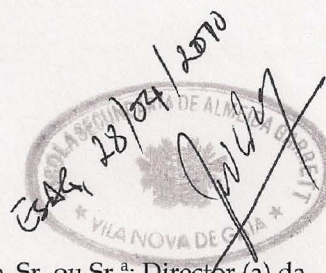 ESAG, 28/04/2010
ESCOLA SECUNDÁRIA DE ALMEIDA GARRETT
VILA NOVA DE GAIA
Sr. ou Sr.ª: Director (a) da